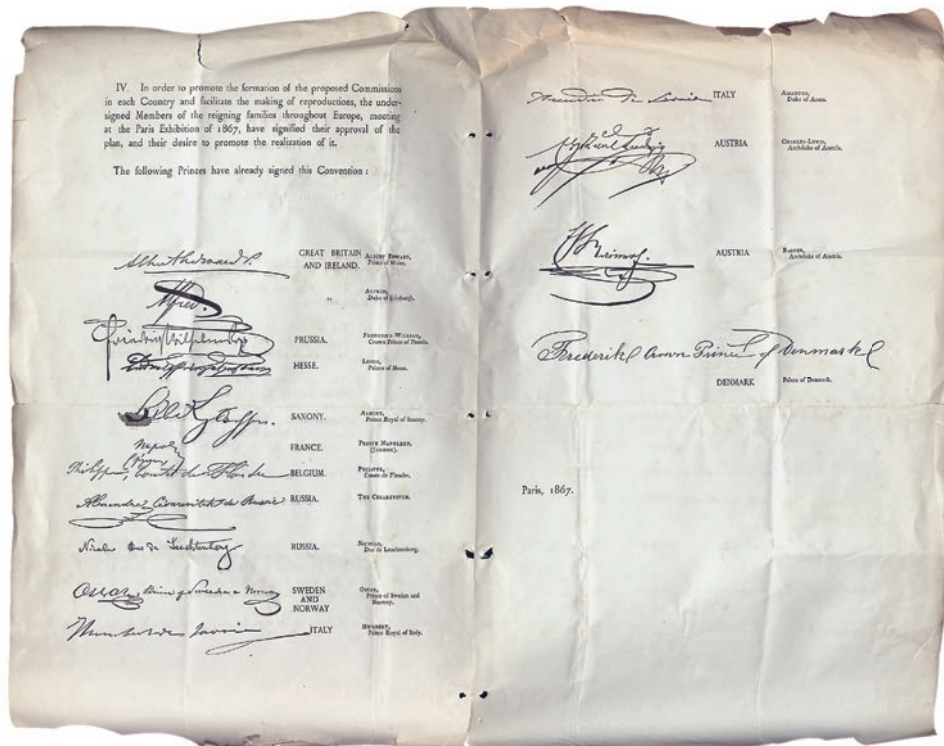 IV. In order to promote the formation of the proposed Commissions
in each Country and facilitate the making of reproductions, the under-
signed Members of the reigning families throughout Europe, meeting
at the Paris Exhibition of 1867, have signified their approval of the
plan, and their desire to promote the realization of it.
The following Princes have already signed this Convention :
Albert Edward P. GREAT BRITAIN AND IRELAND. ALBERT EDWARD, Prince of Wales.
Alfred. " ALFRED, Duke of Edinburgh.
Friedrich Wilhelm PRUSSIA. FREDERICK-WILLIAM, Crown Prince of Prussia.
HESSE. LOUIS, Prince of Hesse.
SAXONY. ALBERT, Prince Royal of Saxony.
Napoléon FRANCE. PRINCE NAPOLEON, (JEROME).
Philippe, Comte de Flandre BELGIUM. PHILIPPE, Comte de Flandre.
Alexandre Césarevitch de Russie RUSSIA. THE CESAREVITCH.
Nicolas Duc de Leuchtenberg RUSSIA. NICHOLAS, Duc de Leuchtenberg.
Oscar, Prince of Sweden & Norway SWEDEN AND NORWAY OSCAR, Prince of Sweden and Norway.
Humbert de Savoie ITALY HUMBERT, Prince Royal of Italy.
Amedeo de Savoie ITALY AMADEUS, Duke of Aosta.
AUSTRIA CHARLES-LOUIS, Archduke of Austria.
AUSTRIA RAINER, Archduke of Austria.
Frederik Crown Prince of Denmark
DENMARK Prince of Denmark.
Paris, 1867.